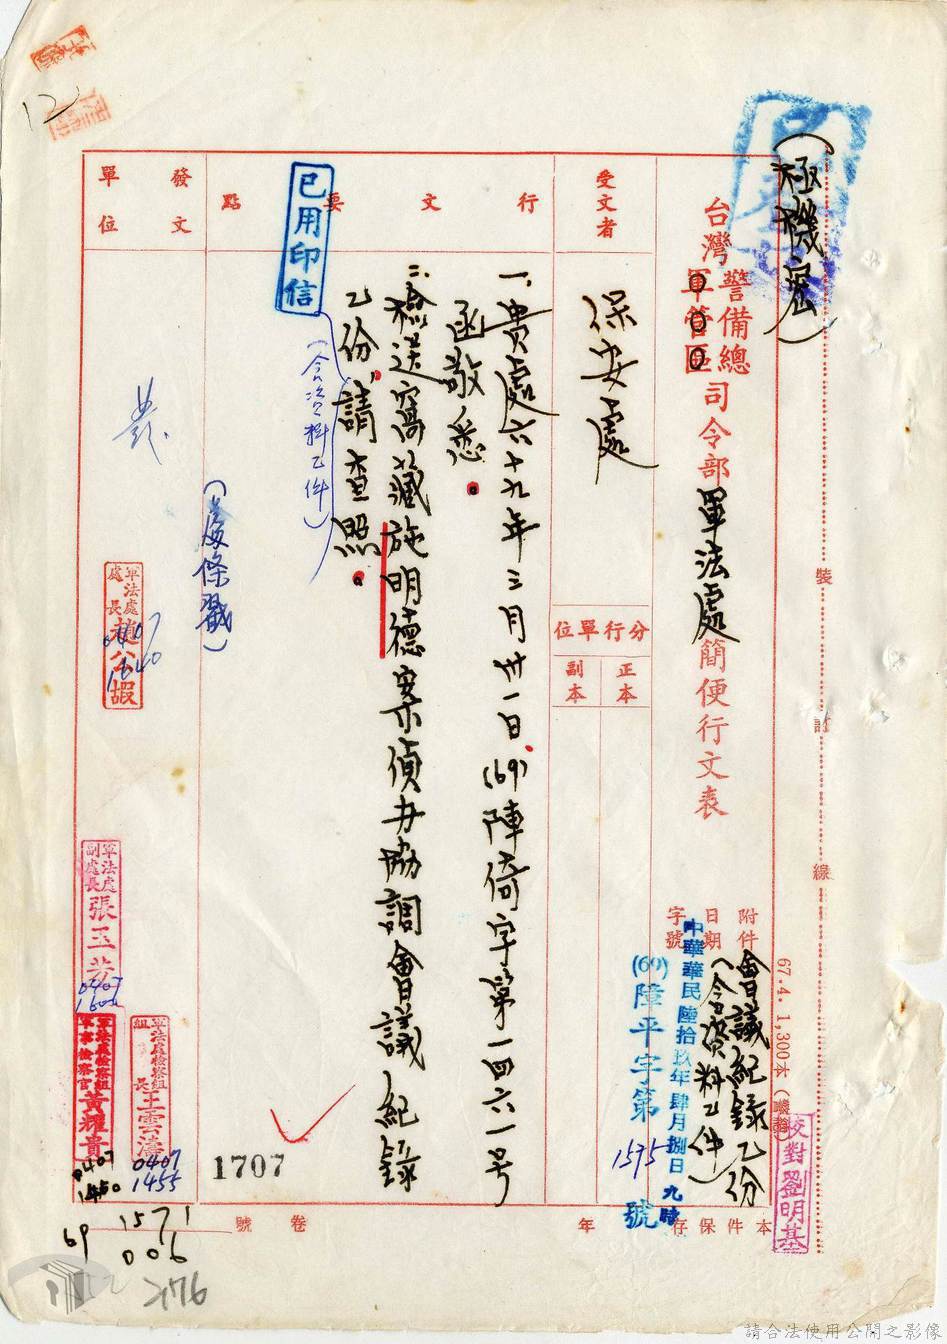 (極機密)
台灣警備總司令部軍法處簡便行文表
軍管區
裝
訂
線
67.4. 1,300本
附件
日期
字號
會議紀錄乙份
(含資料乙件)
中華民國陸拾玖年肆月捌日九時
(69)障平字第1595號
校對劉明基
受文者
保安處
分行單位
正本
副本
行文要點
一、貴處六十九年三月卅一日(69)陣倚字第一四六一号
函敬悉。
二、檢送窩藏施明德案偵办協調會議紀錄
乙份,請查照。
(含資料乙件)
已用印信
發文單位
(處條戳)
軍法處處長趙公嘏
0407
1640
軍法處副處長張玉芳
軍法處檢察組組長王雲濤
0407
1455
軍法處檢察組軍事檢察官黃耀貴
0407
1450
1707
本件保存
年
卷號
69
1571
006
276
12
請合法使用公開之影像